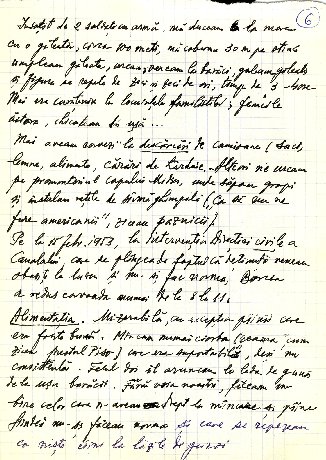 6
Însoțit de 2 soldați cu armă, mă duceam la mare
cu o găleată, circa 100 metri, mă coboram 30 m pe
umpleam găleata, urcam, la barăci, goleam găleata
și se repeta de zeci și zeci de ori, timp de 3 ore
Mai era la locuințele familiștilor; femeile
acestora,
Mai aveam la descărcări de camioane (saci,
lemne, alimente, cărări de . Alteori ne urcam
pe promontoriul Capului Midia, unde săpam gropi
și instalam rețele de sîrmă ghimpată ("Ca să nu ne
fure americanii", ziceau paznicii)
Pe la 15 febr. 1953, la intervenția Direcției civile a
Canalului, care se plîngea de faptul că deținuții veneau
obosiți la lucru și nu-și fac norma, Borcea
a redus corvoada numai de la 8 la 11.
Alimentația. Mizerabilă, cu excepția pîinii care
era foarte bună. Mîncam numai ciorba (zeama, cum
zicea ) care era suportabilă, deși nu
consistentă. Felul doi îl aruncam la lada de gunoi
de la ușa barăcii. Fără voia noastră, făceam un
bine celor care n-aveau drept la mîncare și pîine
fiindcă nu-și făceau norma și care se repezeau
ca niște cîini la lăzile de gunoi